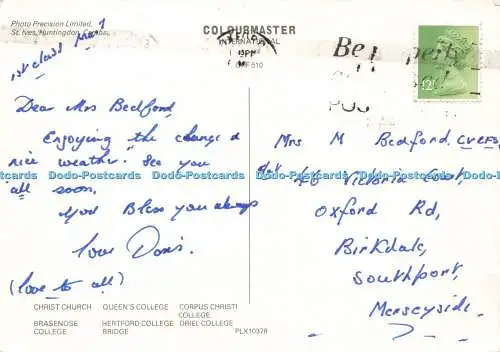 Photo Precision Limited,
St. Ives, Huntingdon, Cambs.
COLOURMASTER
INTERNATIONAL
1st class
Be properly
12P
Dear Mrs Bedford,
Enjoying the change &
nice weather. See you
all soon.
God Bless you always
love Doris.
(love to all)
Mrs M Bedford,
46 Victoria Court,
Oxford Rd,
Birkdale,
Southport,
Merseyside.
Dodo-Postcards Dodo-Postcards Dodo-Postcards Dodo-Postcards Dodo-Postcards Dodo-Postcards
CHRIST CHURCH QUEEN'S COLLEGE CORPUS CHRISTI
COLLEGE
BRASENOSE HERTFORD COLLEGE ORIEL COLLEGE
COLLEGE BRIDGE PLX10378